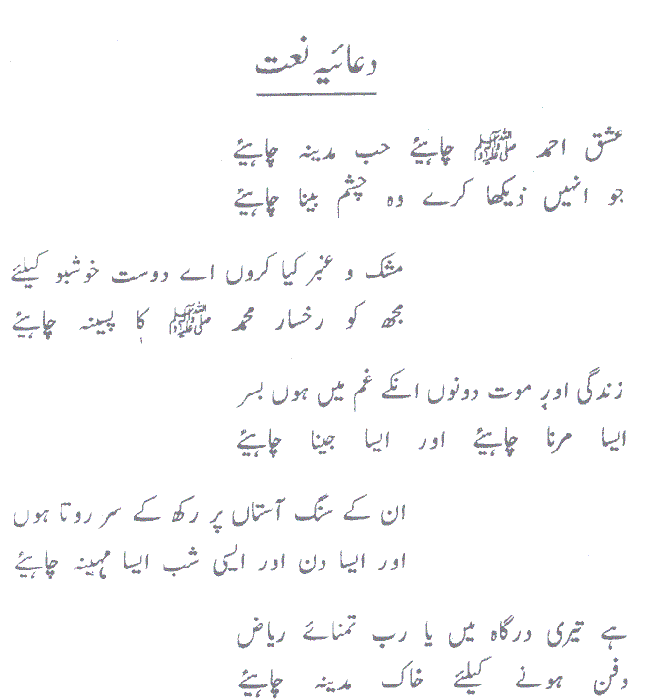 دعائیہ نعت
عشق احمد ﷺ چاہیئے حب مدینہ چاہیئے
جو انہیں دیکھا کرے وہ چشم بینا چاہیئے
مشک و عنبر کیا کروں اے دوست خوشبو کیلئے
مجھ کو رخسار محمد ﷺ کا پسینہ چاہیئے
زندگی اور موت دونوں انکے غم میں ہوں بسر
ایسا مرنا چاہیئے اور ایسا جینا چاہیئے
ان کے سنگ آستاں پر رکھ کے سر روتا ہوں
اور ایسا دن اور ایسی شب ایسا مہینہ چاہیئے
ہے تیری درگاہ میں یا رب تمنائے ریاض
دفن ہونے کیلئے خاک مدینہ چاہیئے